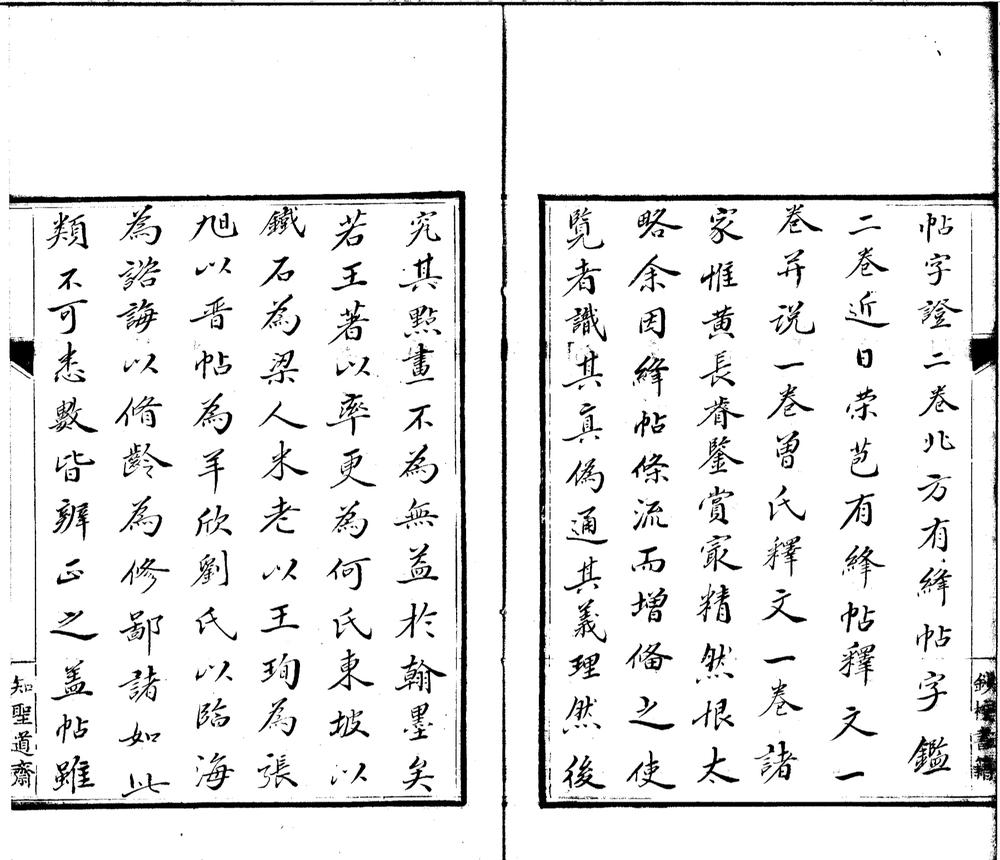 帖字證二卷北方有絳帖字鑑
二卷近日榮芑有絳帖釋文一
卷并说一卷曾氏釋文一卷諸
家惟黄長睿鑒賞㝡精然恨太
略余因絳帖條流而增俻之使
覧者識其真偽通其義理然後
鈔校書籍
究其點畫不為無益於翰墨矣
若王著以率更為何氏東坡以
鐵石為梁人米老以王珣為張
旭以晋帖為羊欣劉氏以臨海
為諮誨以脩齡為修鄙諸如此
類不可悉數皆辨正之盖帖雖
知聖道齋